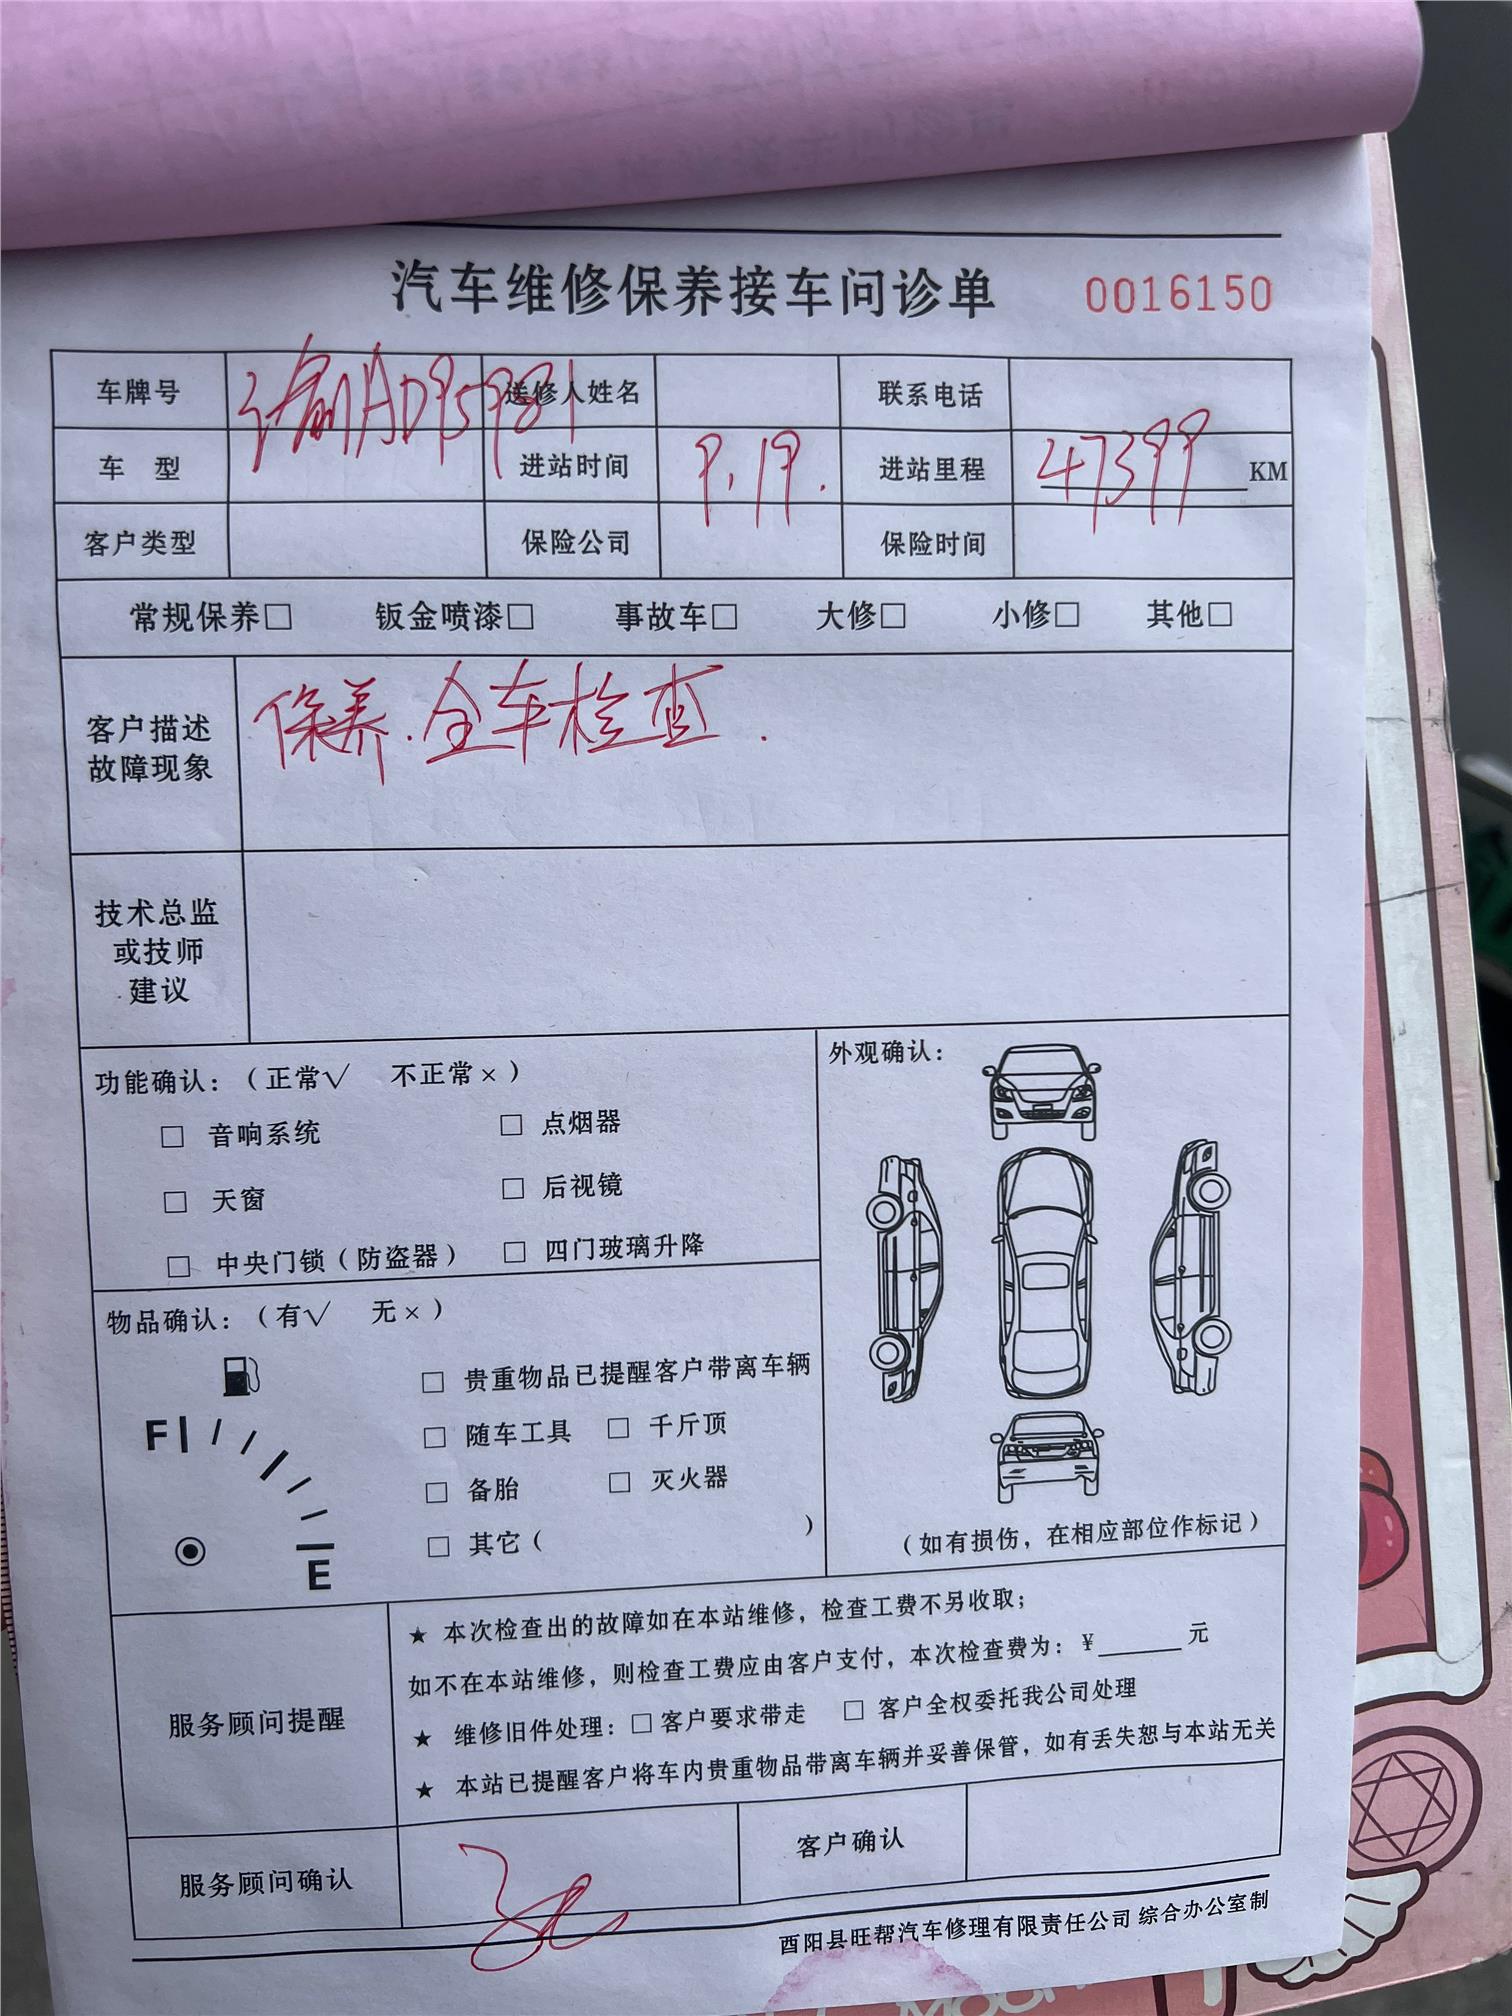 汽车维修保养接车问诊单 0016150
车牌号 渝AD95981 送修人姓名 联系电话
车 型 进站时间 9.19. 进站里程 47399 KM
客户类型 保险公司 保险时间
常规保养□ 钣金喷漆□ 事故车□ 大修□ 小修□ 其他□
客户描述
故障现象
保养.全车检查.
技术总监
或技师
建议
功能确认：（正常√ 不正常×）
□ 音响系统 □ 点烟器
□ 天窗 □ 后视镜
□ 中央门锁（防盗器） □ 四门玻璃升降
外观确认：
（如有损伤，在相应部位作标记）
物品确认：（有√ 无×）
F
E
□ 贵重物品已提醒客户带离车辆
□ 随车工具 □ 千斤顶
□ 备胎 □ 灭火器
□ 其它（ ）
服务顾问提醒
★ 本次检查出的故障如在本站维修，检查工费不另收取；
如不在本站维修，则检查工费应由客户支付，本次检查费为：￥______元
★ 维修旧件处理：□客户要求带走 □ 客户全权委托我公司处理
★ 本站已提醒客户将车内贵重物品带离车辆并妥善保管，如有丢失恕与本站无关
服务顾问确认 客户确认
酉阳县旺帮汽车修理有限责任公司 综合办公室制